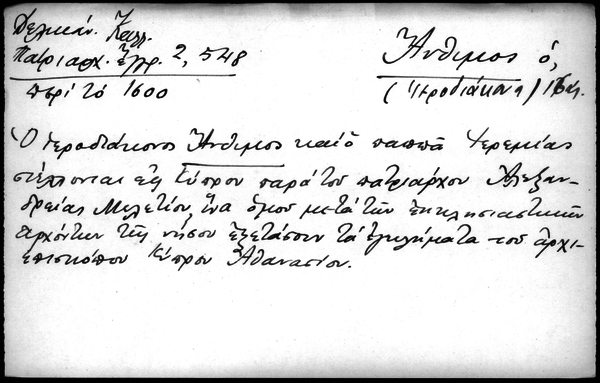 Δελικάν. Καλλ.
Πατριαρχ. Ἔγγρ. 2, 548
περὶ τὸ 1600
Ἄνθιμος ὁ,
(ἱεροδιάκονος)
Ὁ ἱεροδιάκονος Ἄνθιμος καὶ ὁ παππᾶ Ἱερεμίας
στέλλονται εἰς Κύπρον παρὰ τοῦ πατριάρχου Ἀλεξαν-
δρείας Μελετίου, ἵνα ὁμοῦ μετὰ τῶν ἐκκλησιαστικῶν
ἀρχόντων τῆς νήσου ἐξετάσουν τὰ ἐγκλήματα τοῦ ἀρχι-
επισκόπου Κύπρου Ἀθανασίου.